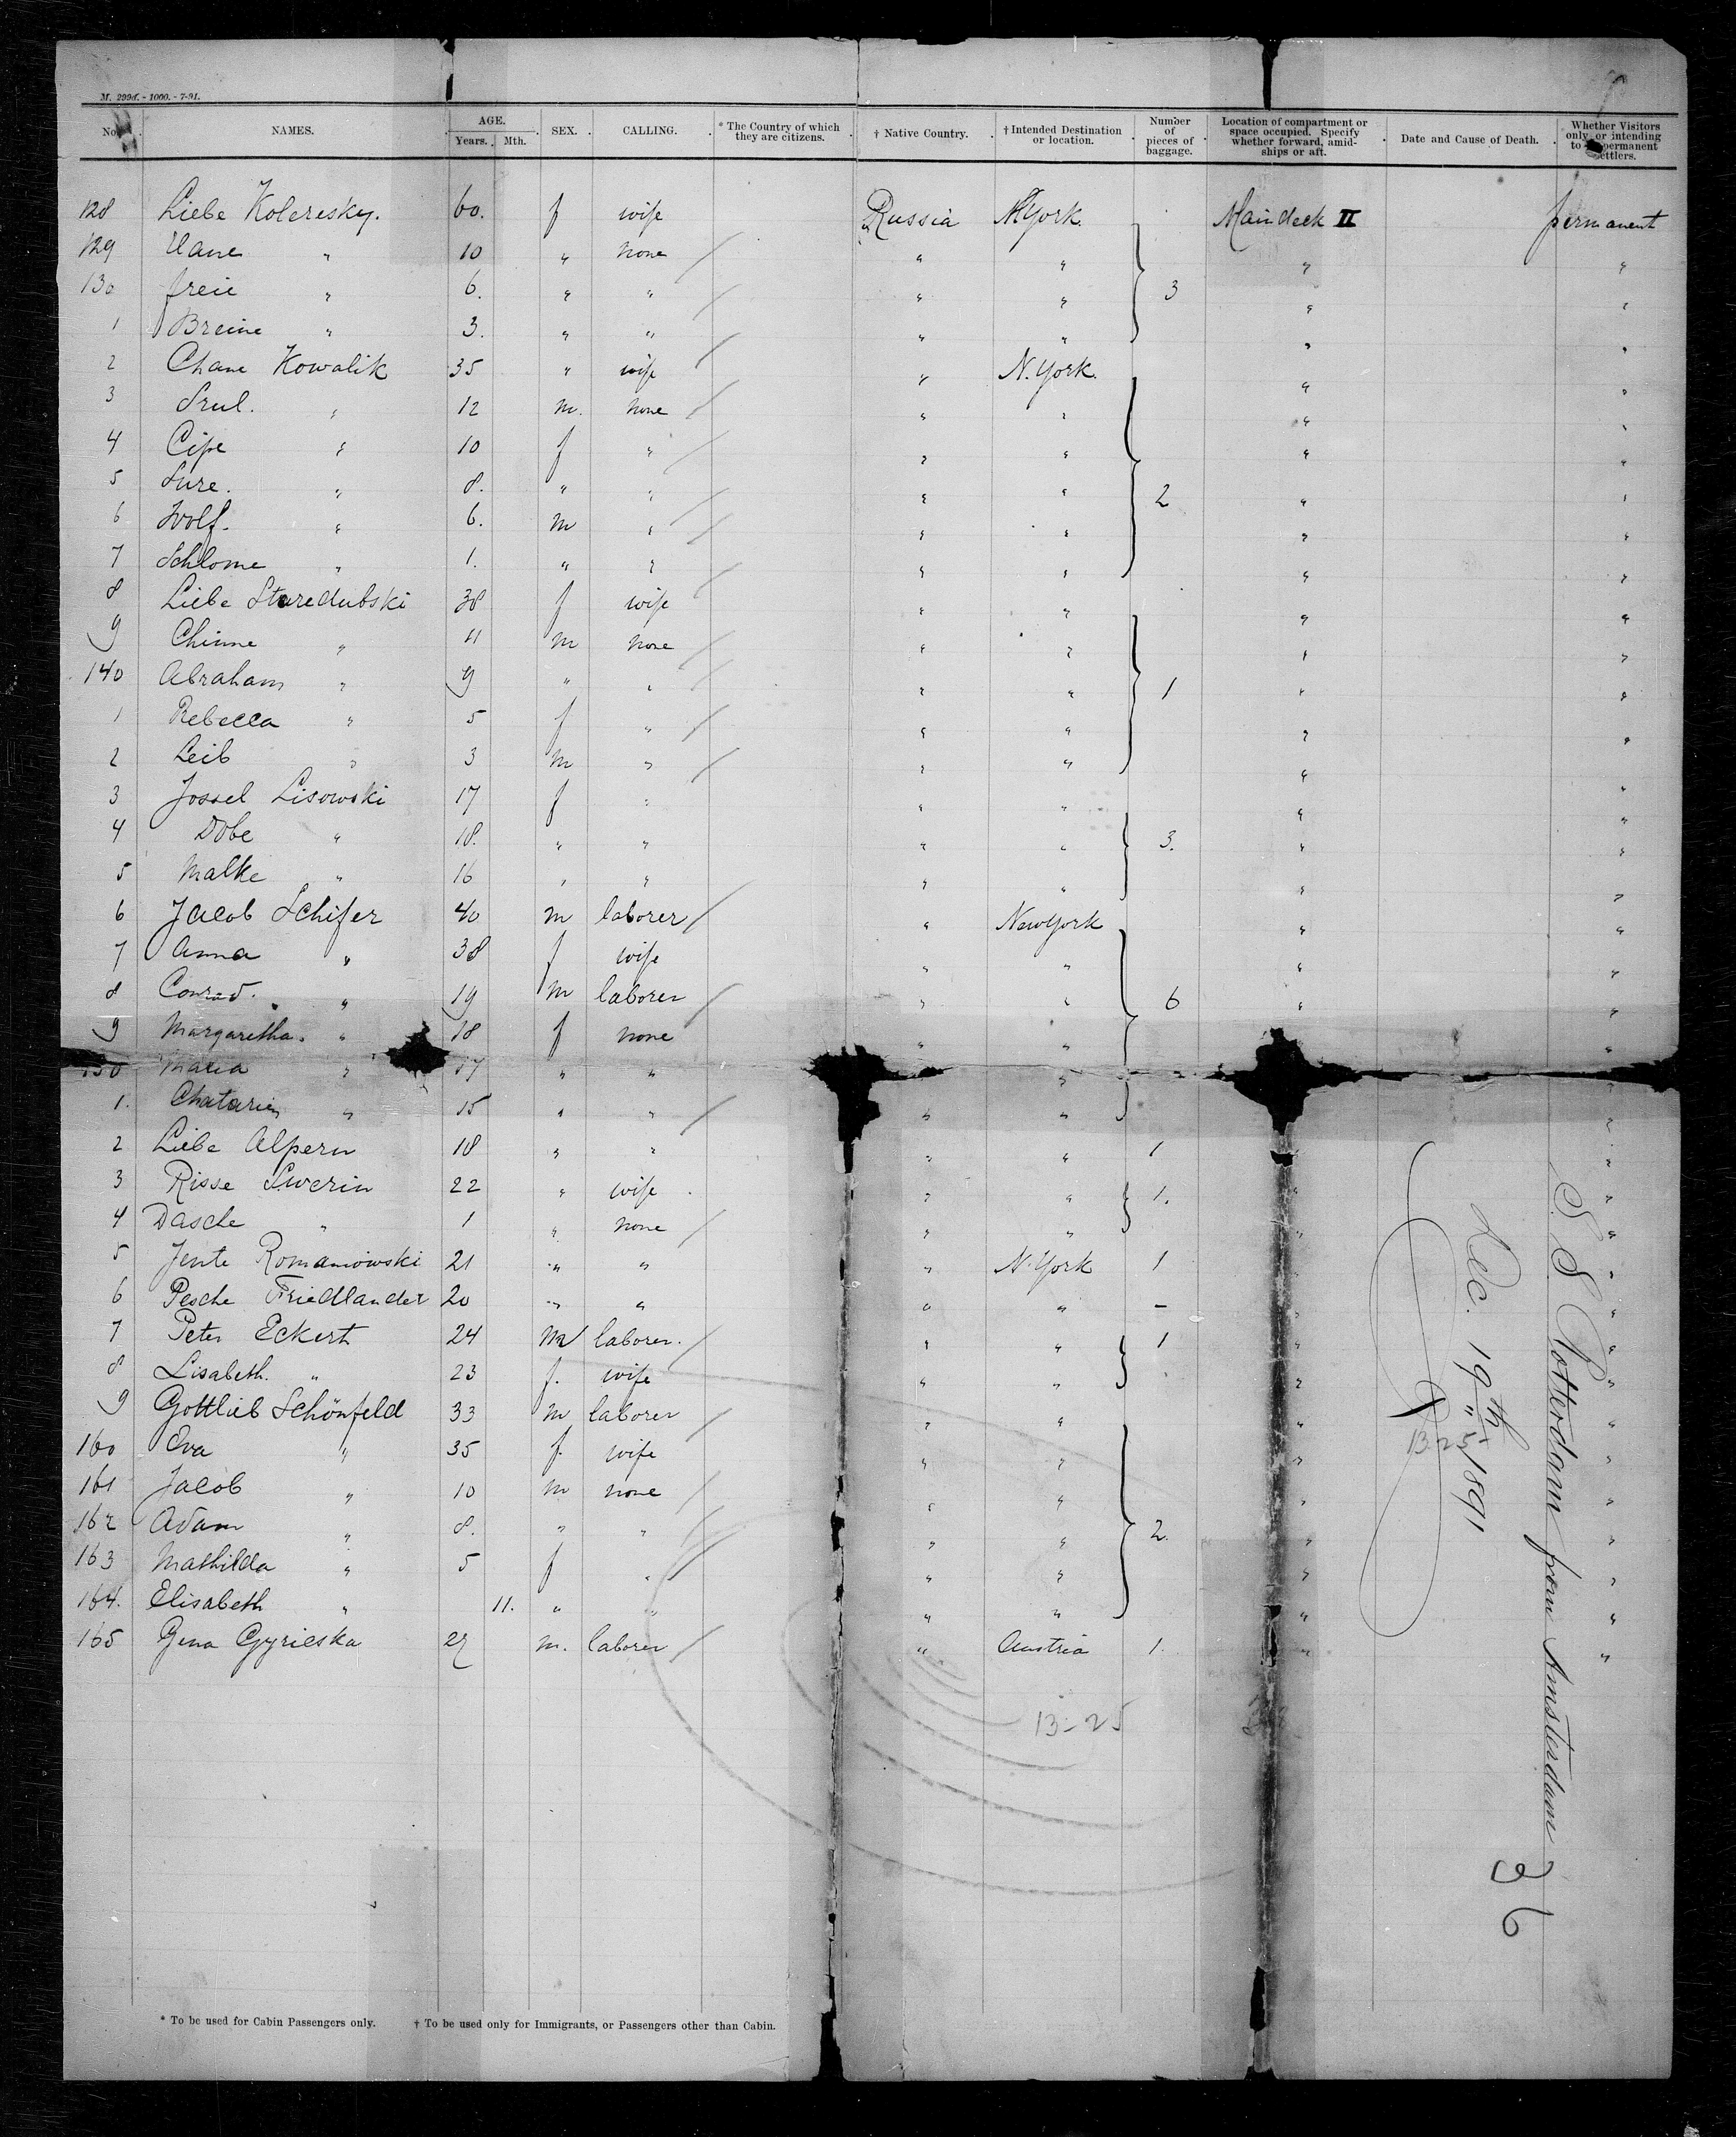 M. 299d. - 1000. - 7-91.
No. NAMES. AGE. Years. Mth. SEX. CALLING. * The Country of which they are citizens. † Native Country. † Intended Destination or location. Number of pieces of baggage. Location of compartment or space occupied. Specify whether forward, amidships or aft. Date and Cause of Death. Whether Visitors only or intending to permanent settlers.
128 Liebe Koleresky. 60. f wife Russia N.York Maindeck II permanent
129 Hane " 10 " none " " " "
130 freie " 6. " " " " 3 " "
1 Breine " 3. " " " " " "
2 Chane Kowalik 35 " wife " N.York. " "
3 Srul. " 12 m. none " " " "
4 Cipe " 10 f " " " " "
5 Sure. " 8. " " " " 2 " "
6 Wolf. " 6. m " " " " "
7 Schlome " 1. " " " " " "
8 Liebe Staredubski 38 f wife " " " "
9 Chinne " 11 m none " " " "
140 Abraham " 9 " " " " 1 " "
1 Rebecca " 5 f " " " " "
2 Leib " 3 m " " " " "
3 Jossel Lisowski 17 f " " " " "
4 Dobe " 18. " " " " 3. " "
5 Malke " 16 " " " " " "
6 Jacob Schifer 40 m laborer " NewYork " "
7 Anna " 38 f wife " " " "
8 Conrad. " 19 m laborer " " 6 " "
9 Margaretha. " 18 f none " " "
150 Maria " 17 " " " "
1. Chatarin " 15 " " " " "
2 Liebe Alpern 18 " " " " 1 "
3 Risse Swerin 22 " wife " " 1. " "
4 Dasche " 1 " none " " " "
5 Jente Romanowski 21 " " " N.York 1 "
6 Pesche Friedlander 20 " " " " - " "
7 Peter Eckert 24 m laborer. " " 1 " "
8 Lisabeth. " 23 f. wife " " " "
9 Gottlieb Schönfeld 33 m laborer " " " "
160 Eva " 35 f. wife " " " "
161 Jacob " 10 m none " " " "
162 Adam " 8. " " " " 2. " "
163 Mathilda " 5 f " " " " "
164. Elisabeth " 11. " " " " " "
165 Gyrieska 27 m. laborer " Austria 1. " "
13-25
S. S. Rotterdam from Amsterdam
Dec. 19th 1891
13-25
36
* To be used for Cabin Passengers only. † To be used only for Immigrants, or Passengers other than Cabin.